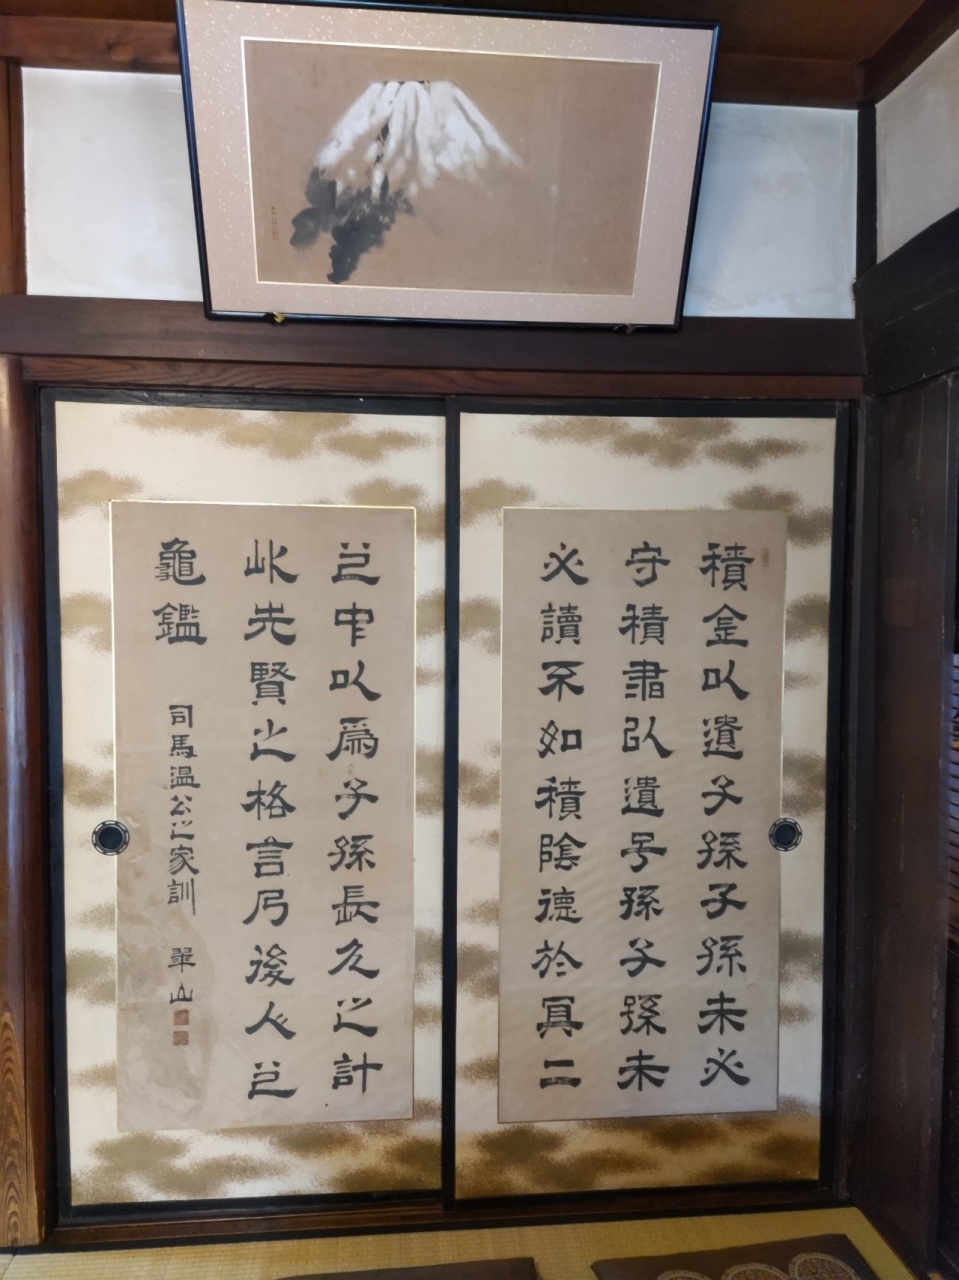 積金以遺子孫子孫未必
守積書以遺子孫子孫未
必讀不如積陰德於冥二
之中以爲子孫長久之計
此先賢之格言乃後人之
龜鑑
司馬温公之家訓 華山